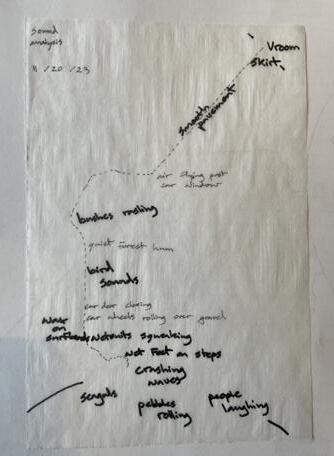 Sound
analysis
11/20/23
Vroom
skirt,
smooth
pavement
air flying past
car window
bushes rusling
quiet forest hum
bird
sounds
car door closing
car wheels rolling over gravel
wax
on
surfboards
wetsuits squeaking
wet feet on steps
crashing
waves
seagulls
pebbles
rolling
people
laughing